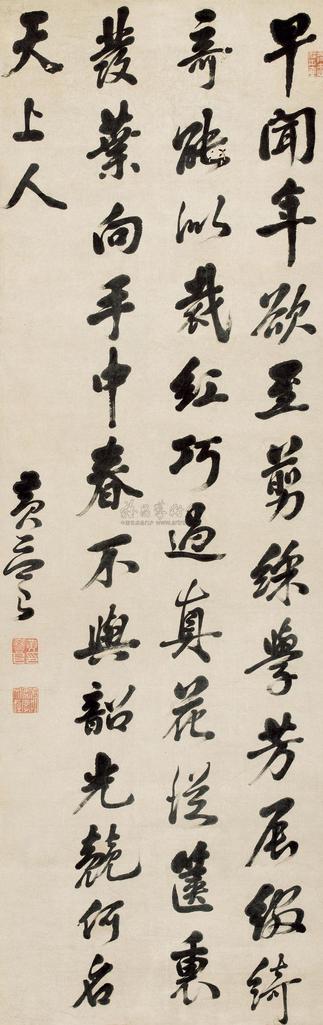 早聞年欲至剪綵學芳辰綴綺
奇能似裁紅巧逼真花從篋裏
發葉向手中春不與韶光競何名
天上人